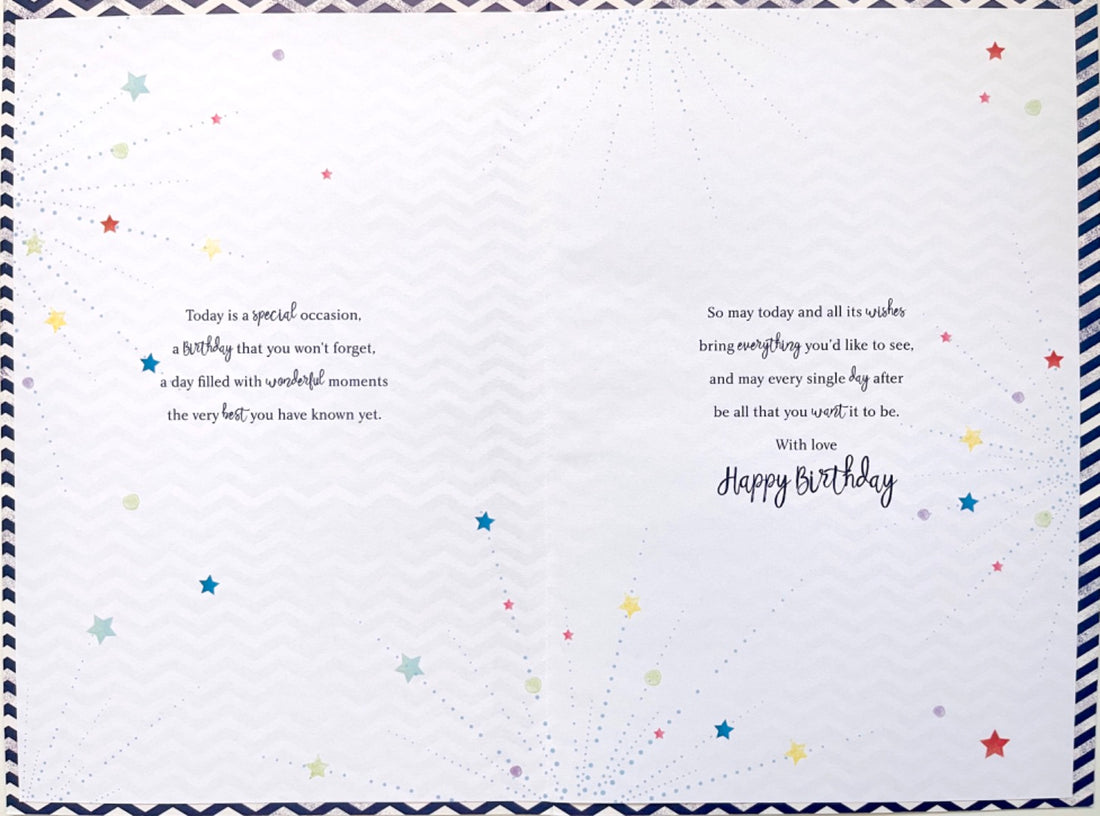 Today is a special occasion,
a Birthday that you won't forget,
a day filled with wonderful moments
the very best you have known yet.
So may today and all its wishes
bring everything you'd like to see,
and may every single day after
be all that you want it to be.
With love
Happy Birthday